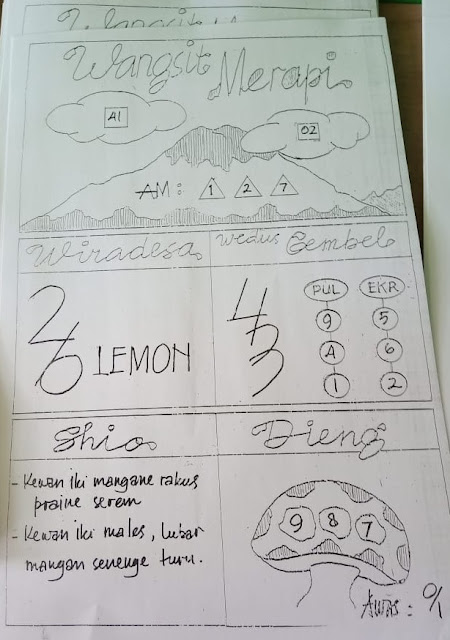 Wangsit Merapi
A1
02
AM : 1 2 7
Wiradesa
26 LEMON
Wedus Gembel
43
PUL EKR
9 5
A 6
1 2
Shio
- Kewan iki mangane rakus
praine serem
- Kewan iki males, lubar
mangan senenge turu.
Dieng
9 8 7
Awas : 0/1